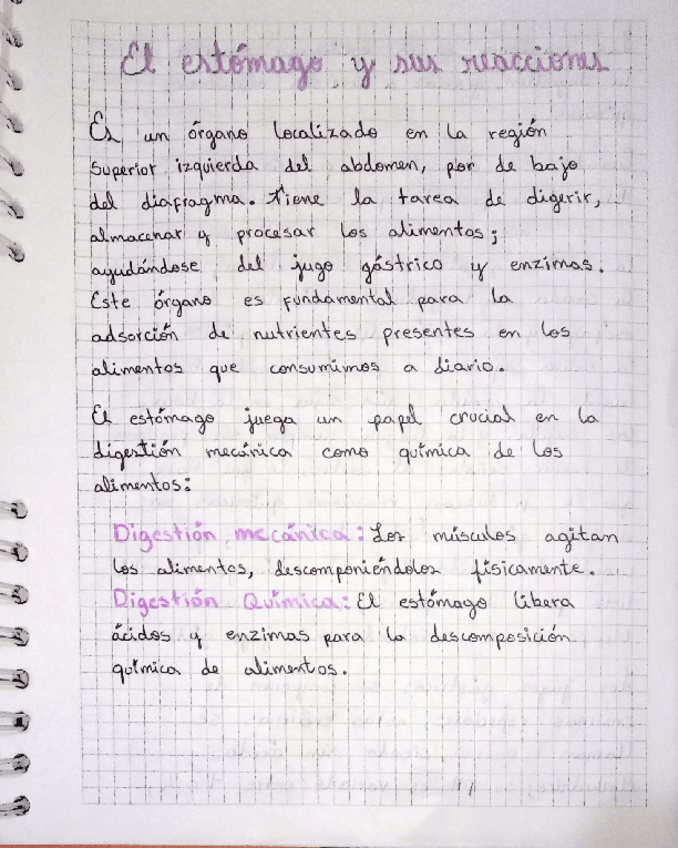 El estómago y sus reacciones
Es un órgano localizado en la región
superior izquierda del abdomen, por de bajo
del diafragma. Tiene la tarea de digerir,
almacenar y procesar los alimentos;
ayudándose del jugo gástrico y enzimas.
Este órgano es fundamental para la
adsorción de nutrientes presentes en los
alimentos que consumimos a diario.
El estómago juega un papel crucial en la
digestión mecánica como química de los
alimentos:
Digestión mecánica: Los músculos agitan
los alimentos, descomponiéndolos físicamente.
Digestión Química: El estómago libera
ácidos y enzimas para la descomposición
química de alimentos.